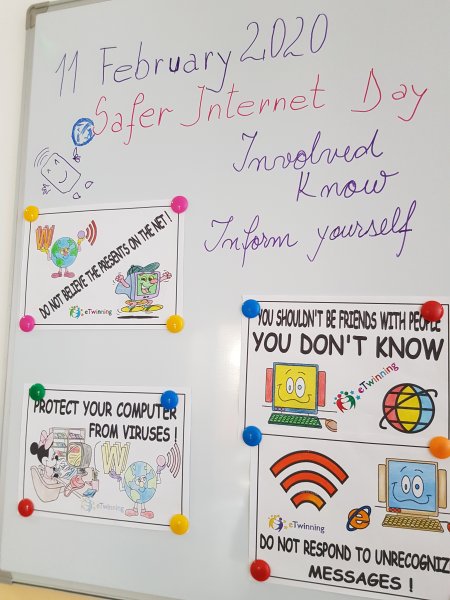 11 February 2020
Safer Internet Day
Involved
Know
Inform yourself
DO NOT BELIEVE THE PRESENTS ON THE NET !
eTwinning
YOU SHOULDN'T BE FRIENDS WITH PEOPLE
YOU DON'T KNOW
eTwinning
PROTECT YOUR COMPUTER
FROM VIRUSES !
eTwinning
eTwinning
DO NOT RESPOND TO UNRECOGNIZ
MESSAGES !